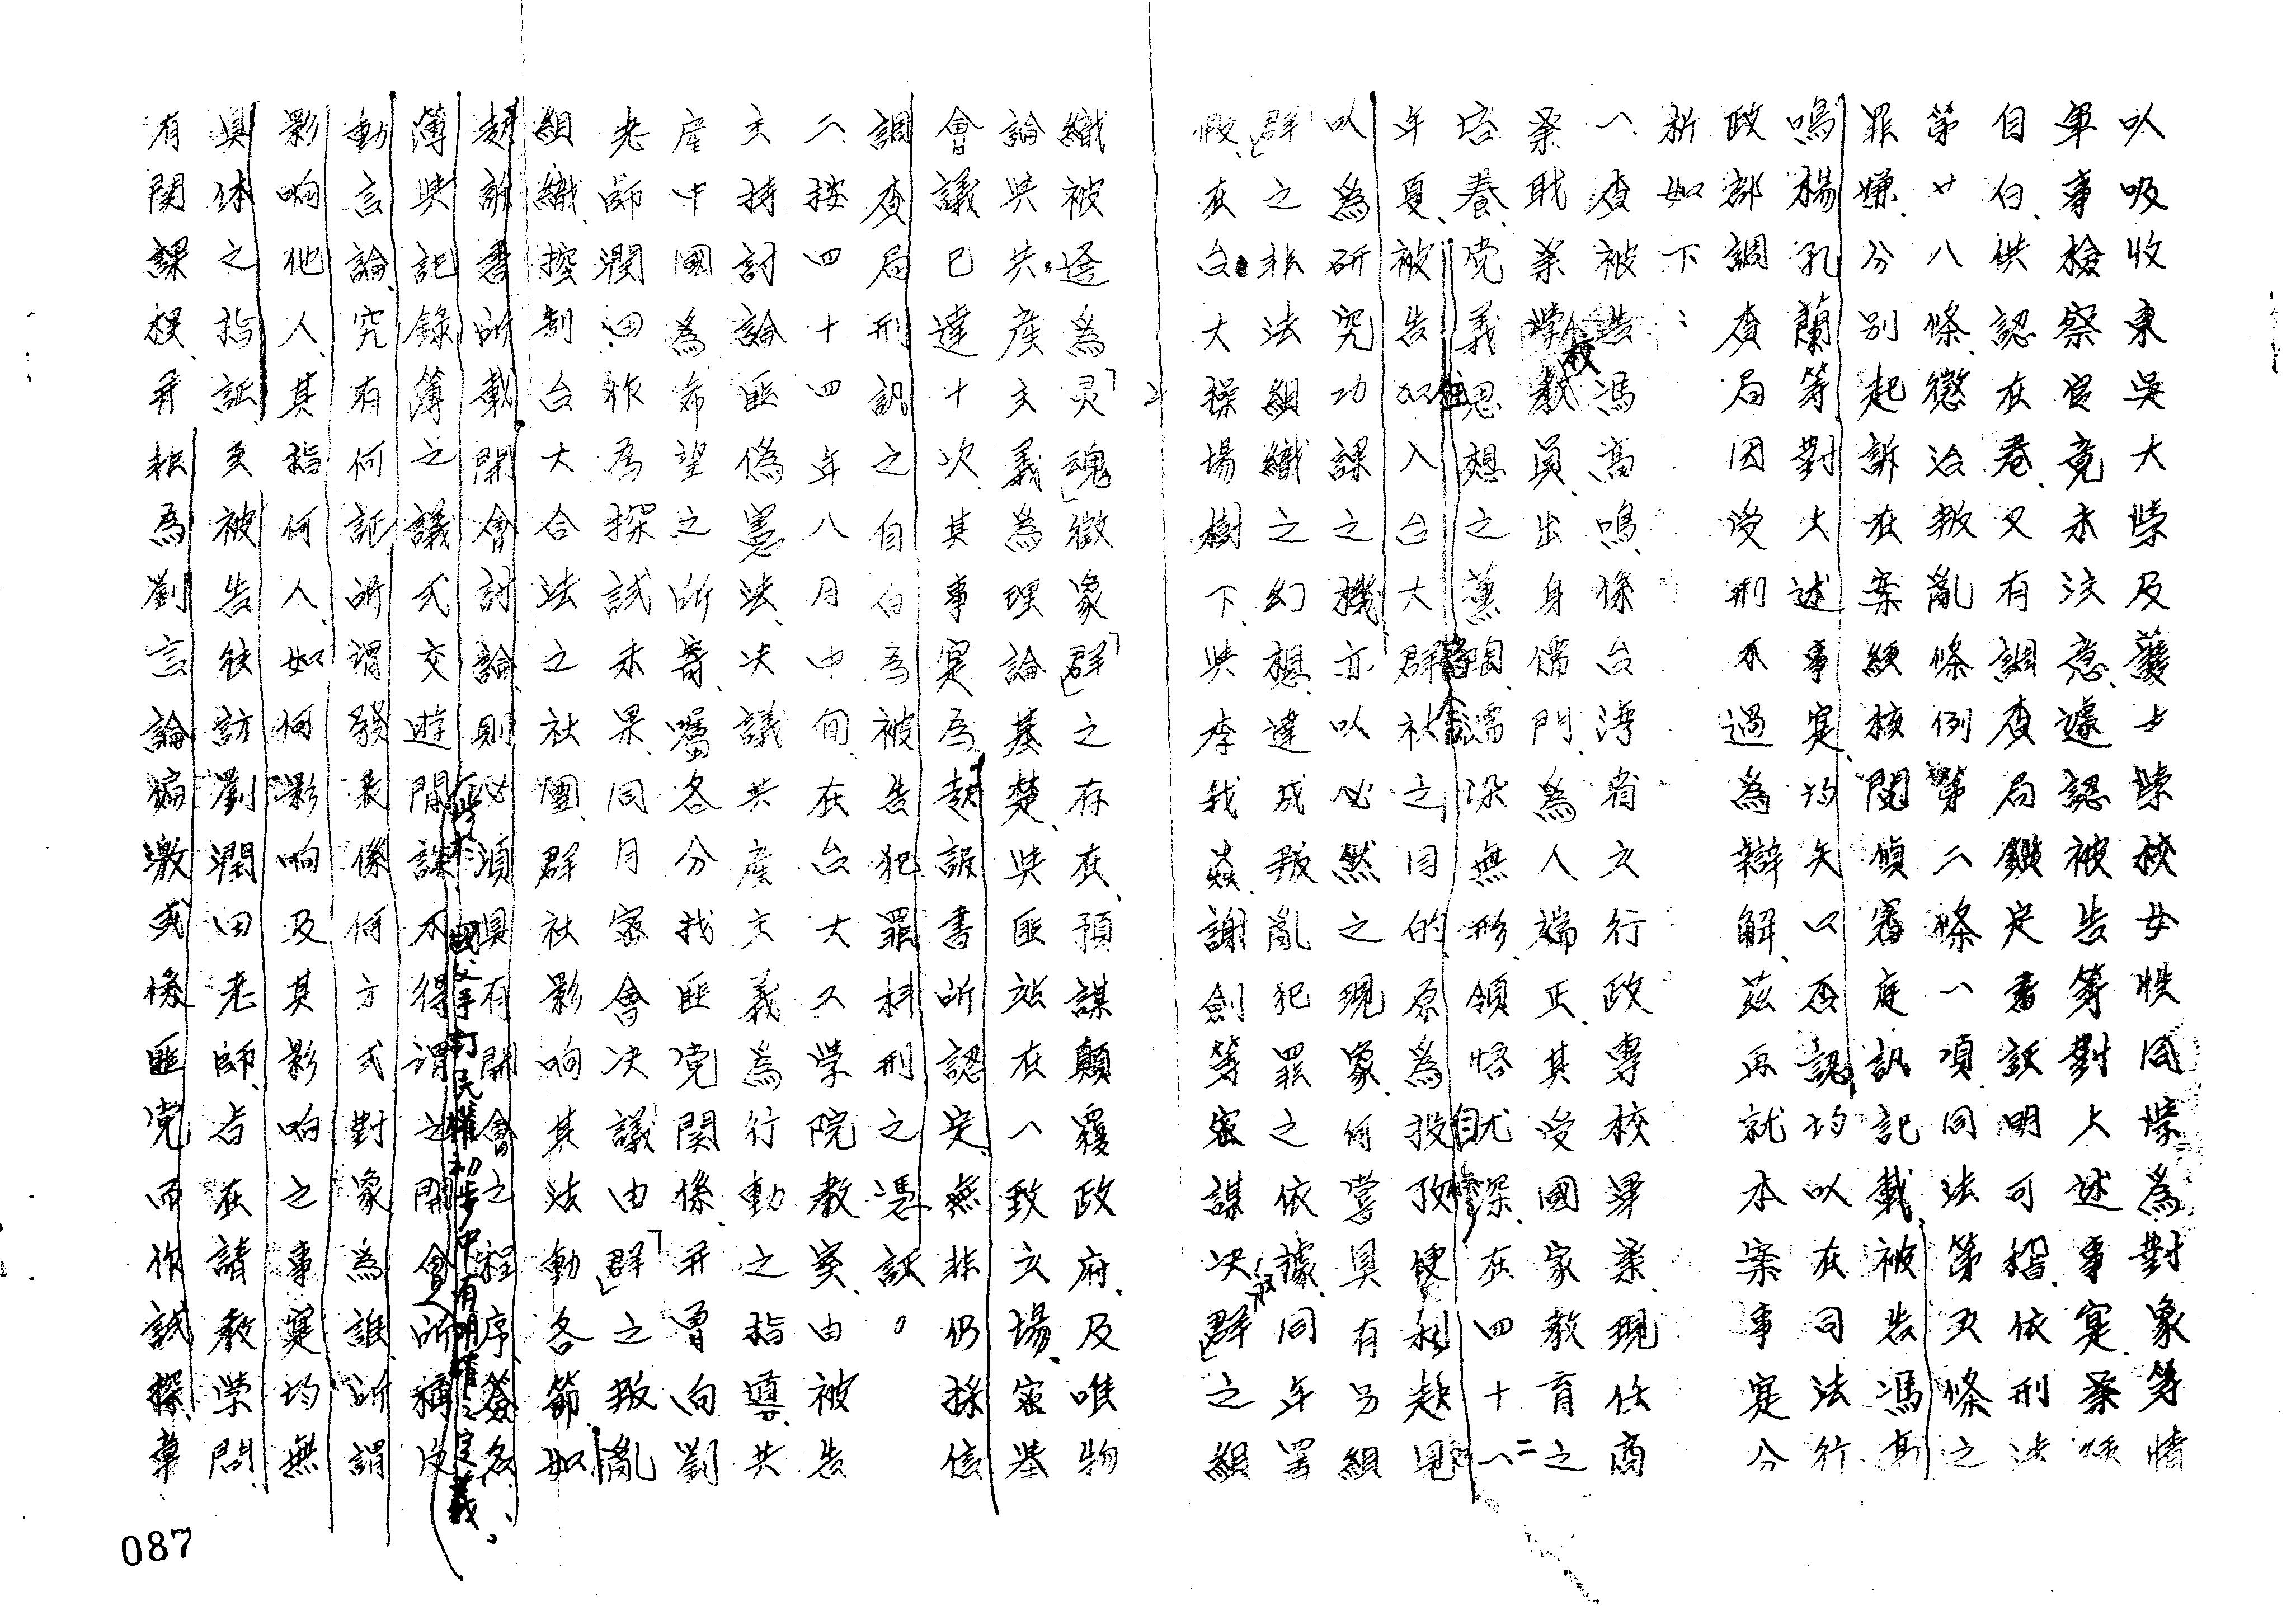 以吸收東吳大學及藝士學校女性同學為對象等情
軍事檢察官竟未注意遽認被告等對上述事實業經
自白供認在卷又有調查局鑑定書証明可稽依刑法
第廿八條懲治叛亂條例第二條一項同法第五條之
罪嫌分別起訴在案經核閱偵審庭訊記載被告馮高
鳴楊孔蘭等對上述事實均矢口否認均以在司法行
政部調查局因受刑不過為辯解茲再就本案事實分
析如下：
一、查被告馮高鳴係台灣省立行政專校畢業現任商
業職業學校教員出身儒門為人端正其受國家教育之
培養党義思想之薰陶濡染無形領悟尤深在四十二
年夏被告加入台大群社之目的原為投攷便利起見
以為研究功課之機亦以必然之現象何嘗具有另組
「群」之非法組織之幻想達成叛亂犯罪之依據同年暑
假在台大操場樹下與李我焱謝劍等密謀決議「群」之組
織被選為「灵魂」徵象「群」之存在預謀顛覆政府及唯物
論與共產主義為理論基楚與匪站在一致立場密集
會議已達十次其事實為起訴書所認定無非仍採信
調查局刑訊之自白為被告犯罪科刑之憑証。
二、按四十四年八月中旬在台大文學院教室由被告
主持討論匪偽憲法決議共產主義為行動之指導共
產中國為希望之所寄囑各分找匪党関係並曾向劉
老師潤田作為探試未果同月密會決議由「群」之叛亂
組織控制台大合法之社團群社影响其法動各節如
起訴書所載開會討論則必須具有開會之程序簽名
於國父手訂民權初步中有明確之定義。
簿與記錄簿之議式交遊閒談不得謂之開會所稱反
動言論究有何証所謂發表係何方式對象為誰所謂
影响他人其指何人如何影响及其影响之事實均無
具体之指証更被告往訪劉潤田老師旨在請教學問
有関課程並非為劉言論偏激或係匪党而作試探章
087